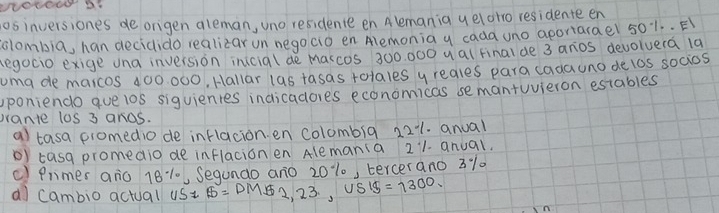 os inversiones de origen aleman, uno residente en Alemania y el otro residente en
colombia, han decidido realizar un negocio en Alemonia y cada uno aportara el 50%. El
negocio exige una inversión inicial de Marcos 300.000 y al final de 3 años devolverá la
uma de marcos 400 000. Hallar las tasas totales y reales para cada uno de los socios
uponiendo que los siguientes indicadores económicos se mantuvieron estables
urante los 3 anos.
a) tasa promedio de inflación en Colombia 22%. anual
b) tasa promedio de inflación en Alemania 2%. anual.
c) Primer año 18%, Segundo año 20%, tercer ano 3%
d) Cambio actual US1$ = DM$ 2,23, US1$ = 1300.